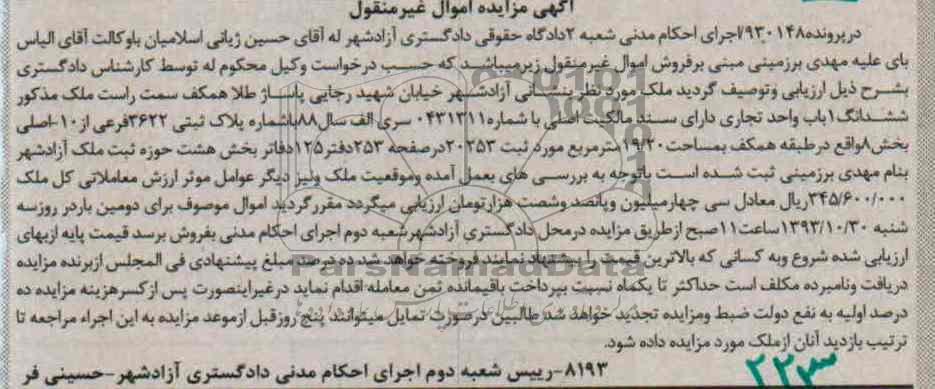 آگهی مزایده اموال غیرمنقول
درپرونده۹۳۰۱۴۸/اجرای احکام مدنی شعبه ۲دادگاه حقوقی دادگستری آزادشهر له آقای حسین زیانی اسلامیان باوکالت آقای الیاس
بای علیه مهدی برزمینی مبنی برفروش اموال غیرمنقول زیرمیباشد که حسب درخواست وکیل محکوم له توسط کارشناس دادگستری
بشرح ذیل ارزیابی وتوصیف گردید ملک مورد نظر بنشانی آزادشهر خیابان شهید رجایی پاساژ طلا همکف سمت راست ملک مذکور
ششدانگ۱باب واحد تجاری دارای سند مالکیت اصلی با شماره۰۴۳۱۳۱۱ سری الف سال۸۸باشماره پلاک ثبتی ۳۶۲۲فرعی از۱۰-اصلی
بخش۸واقع درطبقه همکف بمساحت۱۹/۲۰مترمربع مورد ثبت ۲۰۲۵۳درصفحه ۲۵۳دفتر۱۲۵دفاتر بخش هشت حوزه ثبت ملک آزادشهر
بنام مهدی برزمینی ثبت شده است باتوجه به بررسی های بعمل آمده وموقعیت ملک ونیز دیگر عوامل موثر ارزش معاملاتی کل ملک
۳۴۵/۶۰۰/۰۰۰ریال معادل سی چهارمیلیون وپانصد وشصت هزارتومان ارزیابی میگردد مقررگردید اموال موصوف برای دومین باردر روزسه
شنبه ۱۳۹۳/۱۰/۳۰ساعت۱۱صبح ازطریق مزایده درمحل دادگستری آزادشهرشعبه دوم اجرای احکام مدنی بفروش برسد قیمت پایه ازبهای
ارزیابی شده شروع وبه کسانی که بالاترین قیمت را پیشنهاد نمایند فروخته خواهد شد ده درصد مبلغ پیشنهادی فی المجلس ازبرنده مزایده
دریافت ونامبرده مکلف است حداکثر تا یکماه نسبت بپرداخت باقیمانده ثمن معامله اقدام نماید درغیراینصورت پس ازکسرهزینه مزایده ده
درصد اولیه به نفع دولت ضبط ومزایده تجدید خواهد شد طالبین درصورت تمایل میتوانند پنج روزقبل ازموعد مزایده به این اجراء مراجعه تا
ترتیب بازدید آنان ازملک مورد مزایده داده شود.
۸۱۹۳-رییس شعبه دوم اجرای احکام مدنی دادگستری آزادشهر-حسینی فر
ParsNamadData